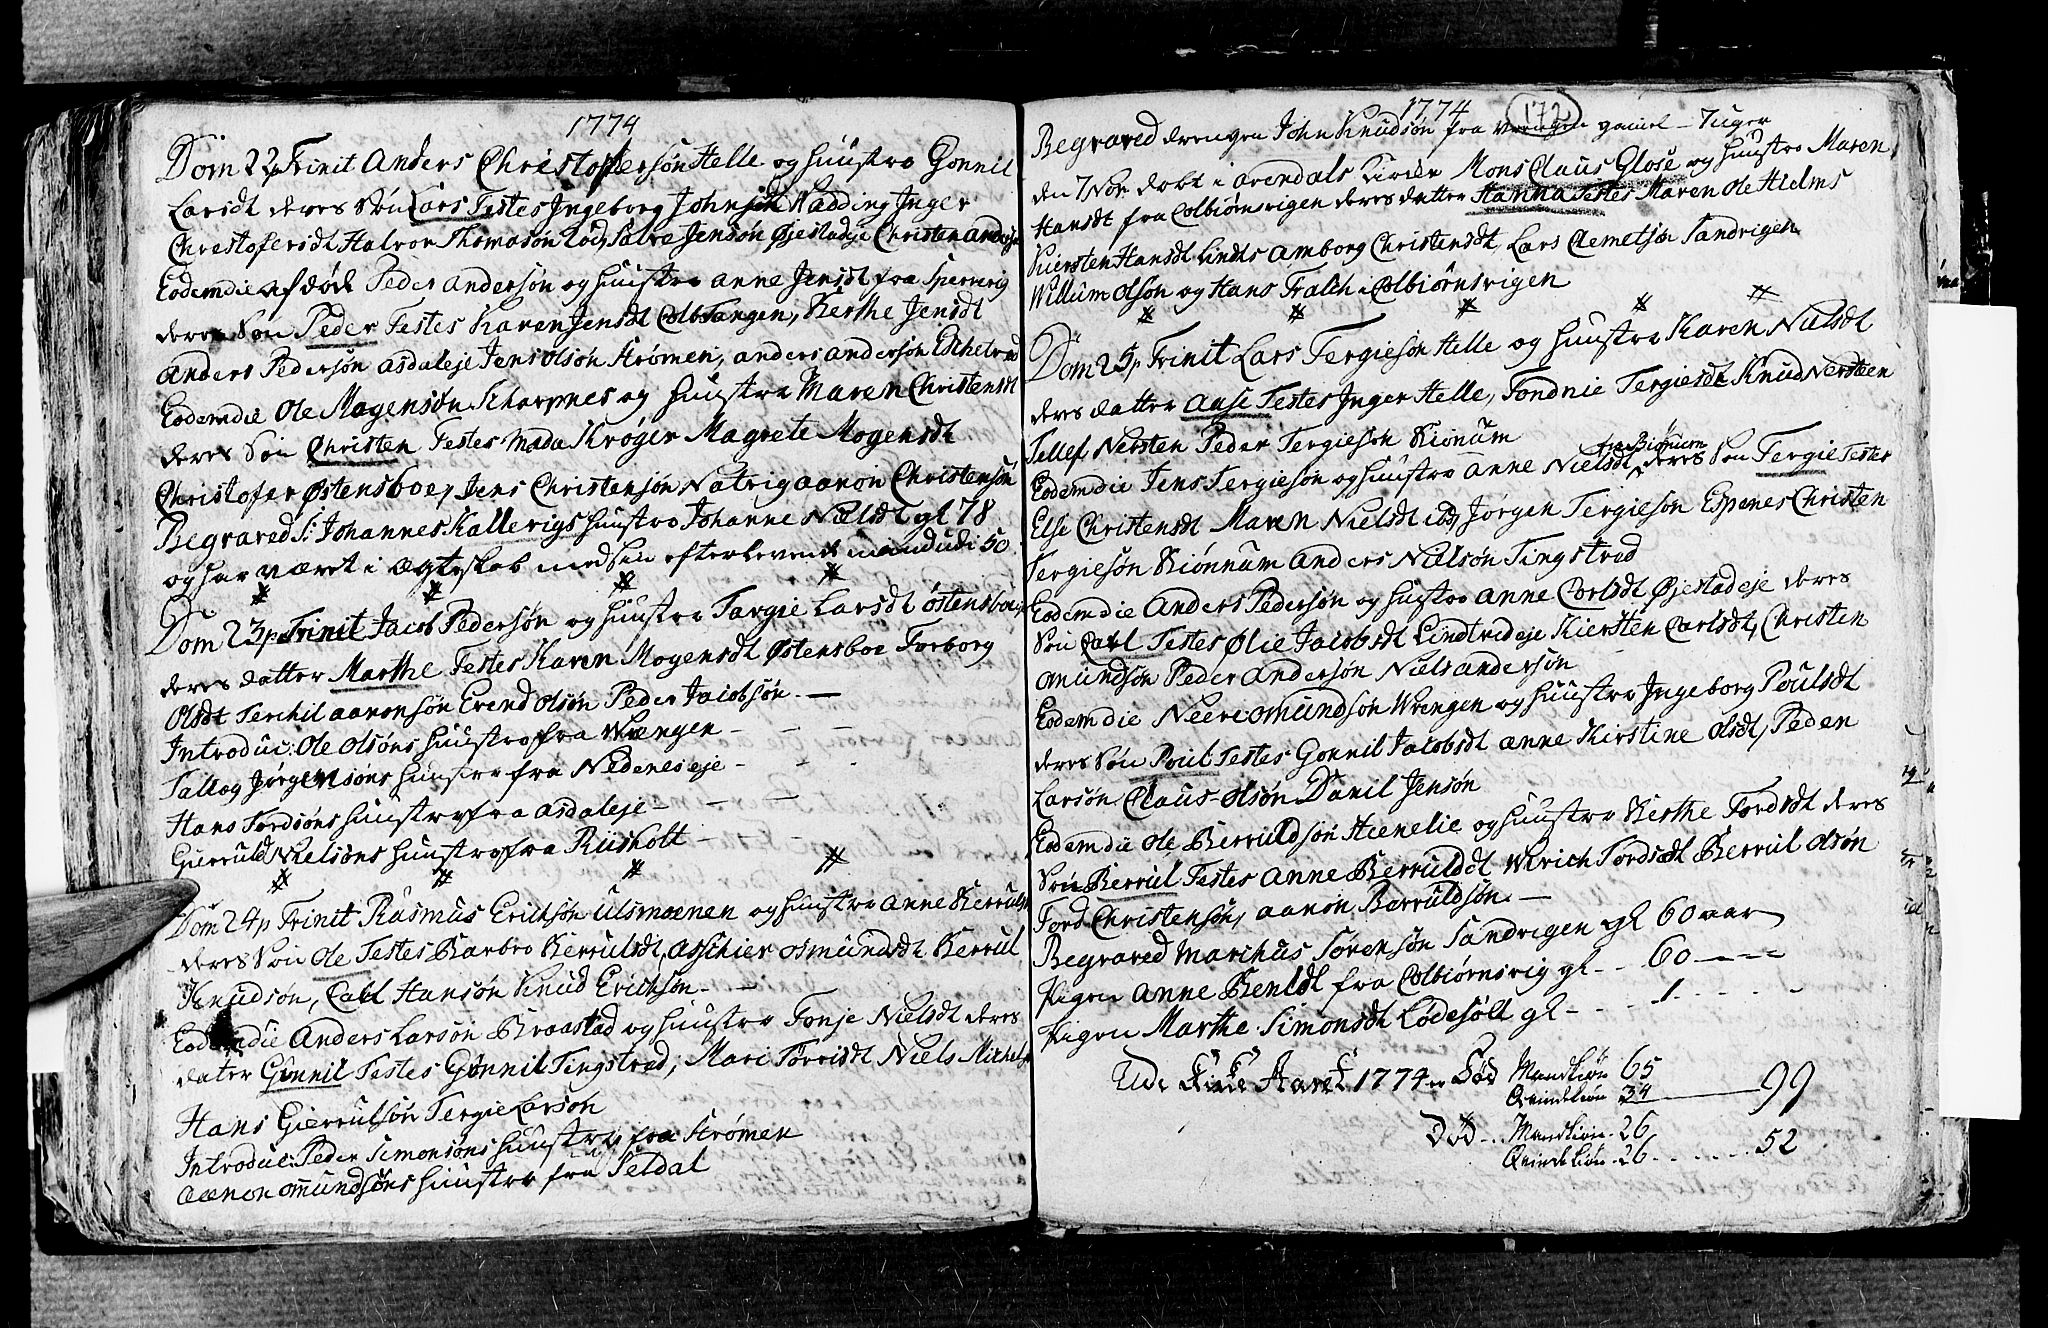 1774
Dom 22 p Trinit Anders Christoffersøn Helle og Huustro Gonnil
Larsdt deres Søn Lars Testes Ingeborg Johnsdt Nødding Inger
Christofersdt Halvor Thomasøn Salve Jensøn Øjestadeje Christen
Eodemdie afdøde Peder Andersøn og Huustro Anne Jensdt fra Spervvig
deres Søn Peder Testes Karen Jensdt Colbtangen, Kerthe Jensdt
Anders Pedersøn Asdaleje Jens Olsøn Strømen, Anders Andersøn
Eodemdie Ole Mogensøn Scharpnes og Huustro Maren Christensdt
deres Søn Christen Testes Mada Krøger Magrete Mogensdt
Christofer Østensboe, Jens Christensøn Natvig Aaron Christensøn
Begraved S: Johannes Kallevigs Huustro Johanne Nielsdt gl 78
og har været i Ægteskab med sin efterlevende mand udi 50
Dom 23 p Trinit Jacob Pedersøn og Huustro Targie Larsdt Østensboe
deres datter Marthe Testes Karen Mogensdt Østensboe Torborg
Olsdt Terchil Aaronsøn Evend Olsøn Peder Jacobsøn
Introduc: Ole Olsøns Huustro fra Wrengen
Tallog Jørgensøns Huustro fra Nedeneseje
Hans Tordsøns Huustro fra Asdaleje
Gierruld Nielsøns Huustro fra Riisholt
Dom 24 p Trinit Rasmus Ericksøn Ulsmoenen og Huustro Anne
deres Søn Ole Testes Barbro Berrulsdt, Asschier Osmundsdt Berrul
Knudsøn, Carl Hansøn Knud Ericksøn
Eodemdie Anders Larsøn Braastad og Huustro Tonje Nielsdt deres
dater Gonnil Testes Gønnil Tingstved, Mari Torrisdt Niels
Hans Gierrulsøn Tergie Larsøn
Introduc: Peder Simonsøns Huustro fra Strømen
Aanon Omundsøns Huustro fra Seldal
1774
172
Begraved drengen John Knudsøn fra Vrengen gamel 7 uger
den 7 Nov døbt i Arendals Kircke Mons Claus Glose og Huustro Maren
Hansdt fra Colbiørnsvigen deres datter Hanna Testes Maren de Hielms
Kiersten Hansdt Linds Amborg Christensdt, Lars Clemetsøn Sandvigen
Willum Olsøn og Hans Fralch i Colbiørnsvigen
Dom 25 p Trinit Lars Tergiesøn Helle og Huustro Karen Nielsdt
deres datter Aase Testes Inger Helle, Tondnie Tergiesdt Knud Nersteen
Tellef Nersten Peder Tergiesøn Kiønum
Eodemdie Jens Tergiesøn og Huustro Anne Nielsdt fra Biønum deres Søn Tergie Testes
Else Christensdt Maren Nielsdt ibd Jørgen Tergiesøn Espenes Christen
Tergiesøn Kiønnum Anders Nielsøn Tingstved
Eodemdie Anders Pedersøn og Hustro Anne Carlsdt Øjestadeje deres
Søn Carl Testes Ølie Jacobsdt Lindtvedeje Kiersten Carlsdt, Christen
Omundsøn Peder Andersøn Niels Andersøn
Eodemdie Neeri Omundsøn Wrengen og Huustro Ingeborg Poulsdt
deres Søn Poul Testes Gonnil Jacobsdt Anne Kirstine Olsdt, Peder
Larsøn, Claus Olsøn Danil Jensøn
Eodemdie Ole Berruldsøn og Huustro Kirthe Tordsdt deres
Søn Berrul Testes Anne Berruldsdt Wlrich Tordsdt Berrul Olsøn
Tord Christensøn, Aaron Berruldsøn
Begraved Marchus Sørensøn Sandvigen gl 60 aar
Pigen Anne Bentsdt fra Colbiørnsvig gl 60
Pigen Marthe Simonsdt Lødesølt gl 1
Udi dette Aaret 1774 er Fød Mandkiøn 65
Qvindekiøn 34 99
Død Mandkiøn 26
Qvindekiøn 26 52